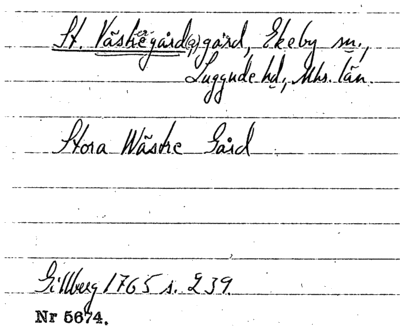 St. Väskegård(a) gård, Ekeby sn.,
Luggude hd, Mhs. län.
Stora Wäske Gård
Gillberg 1765 s. 239.
Nr 5674.